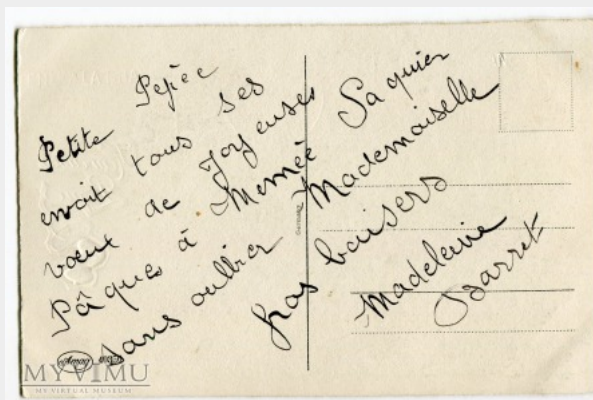 Petite Pepée
envoit tous ses
vœux de Joyeuses
Pâques à Memée Saquier
sans oublier Mademoiselle
gros baisers
Madeleine
Barret
MYVIMU
MY VIRTUAL MUSEUM